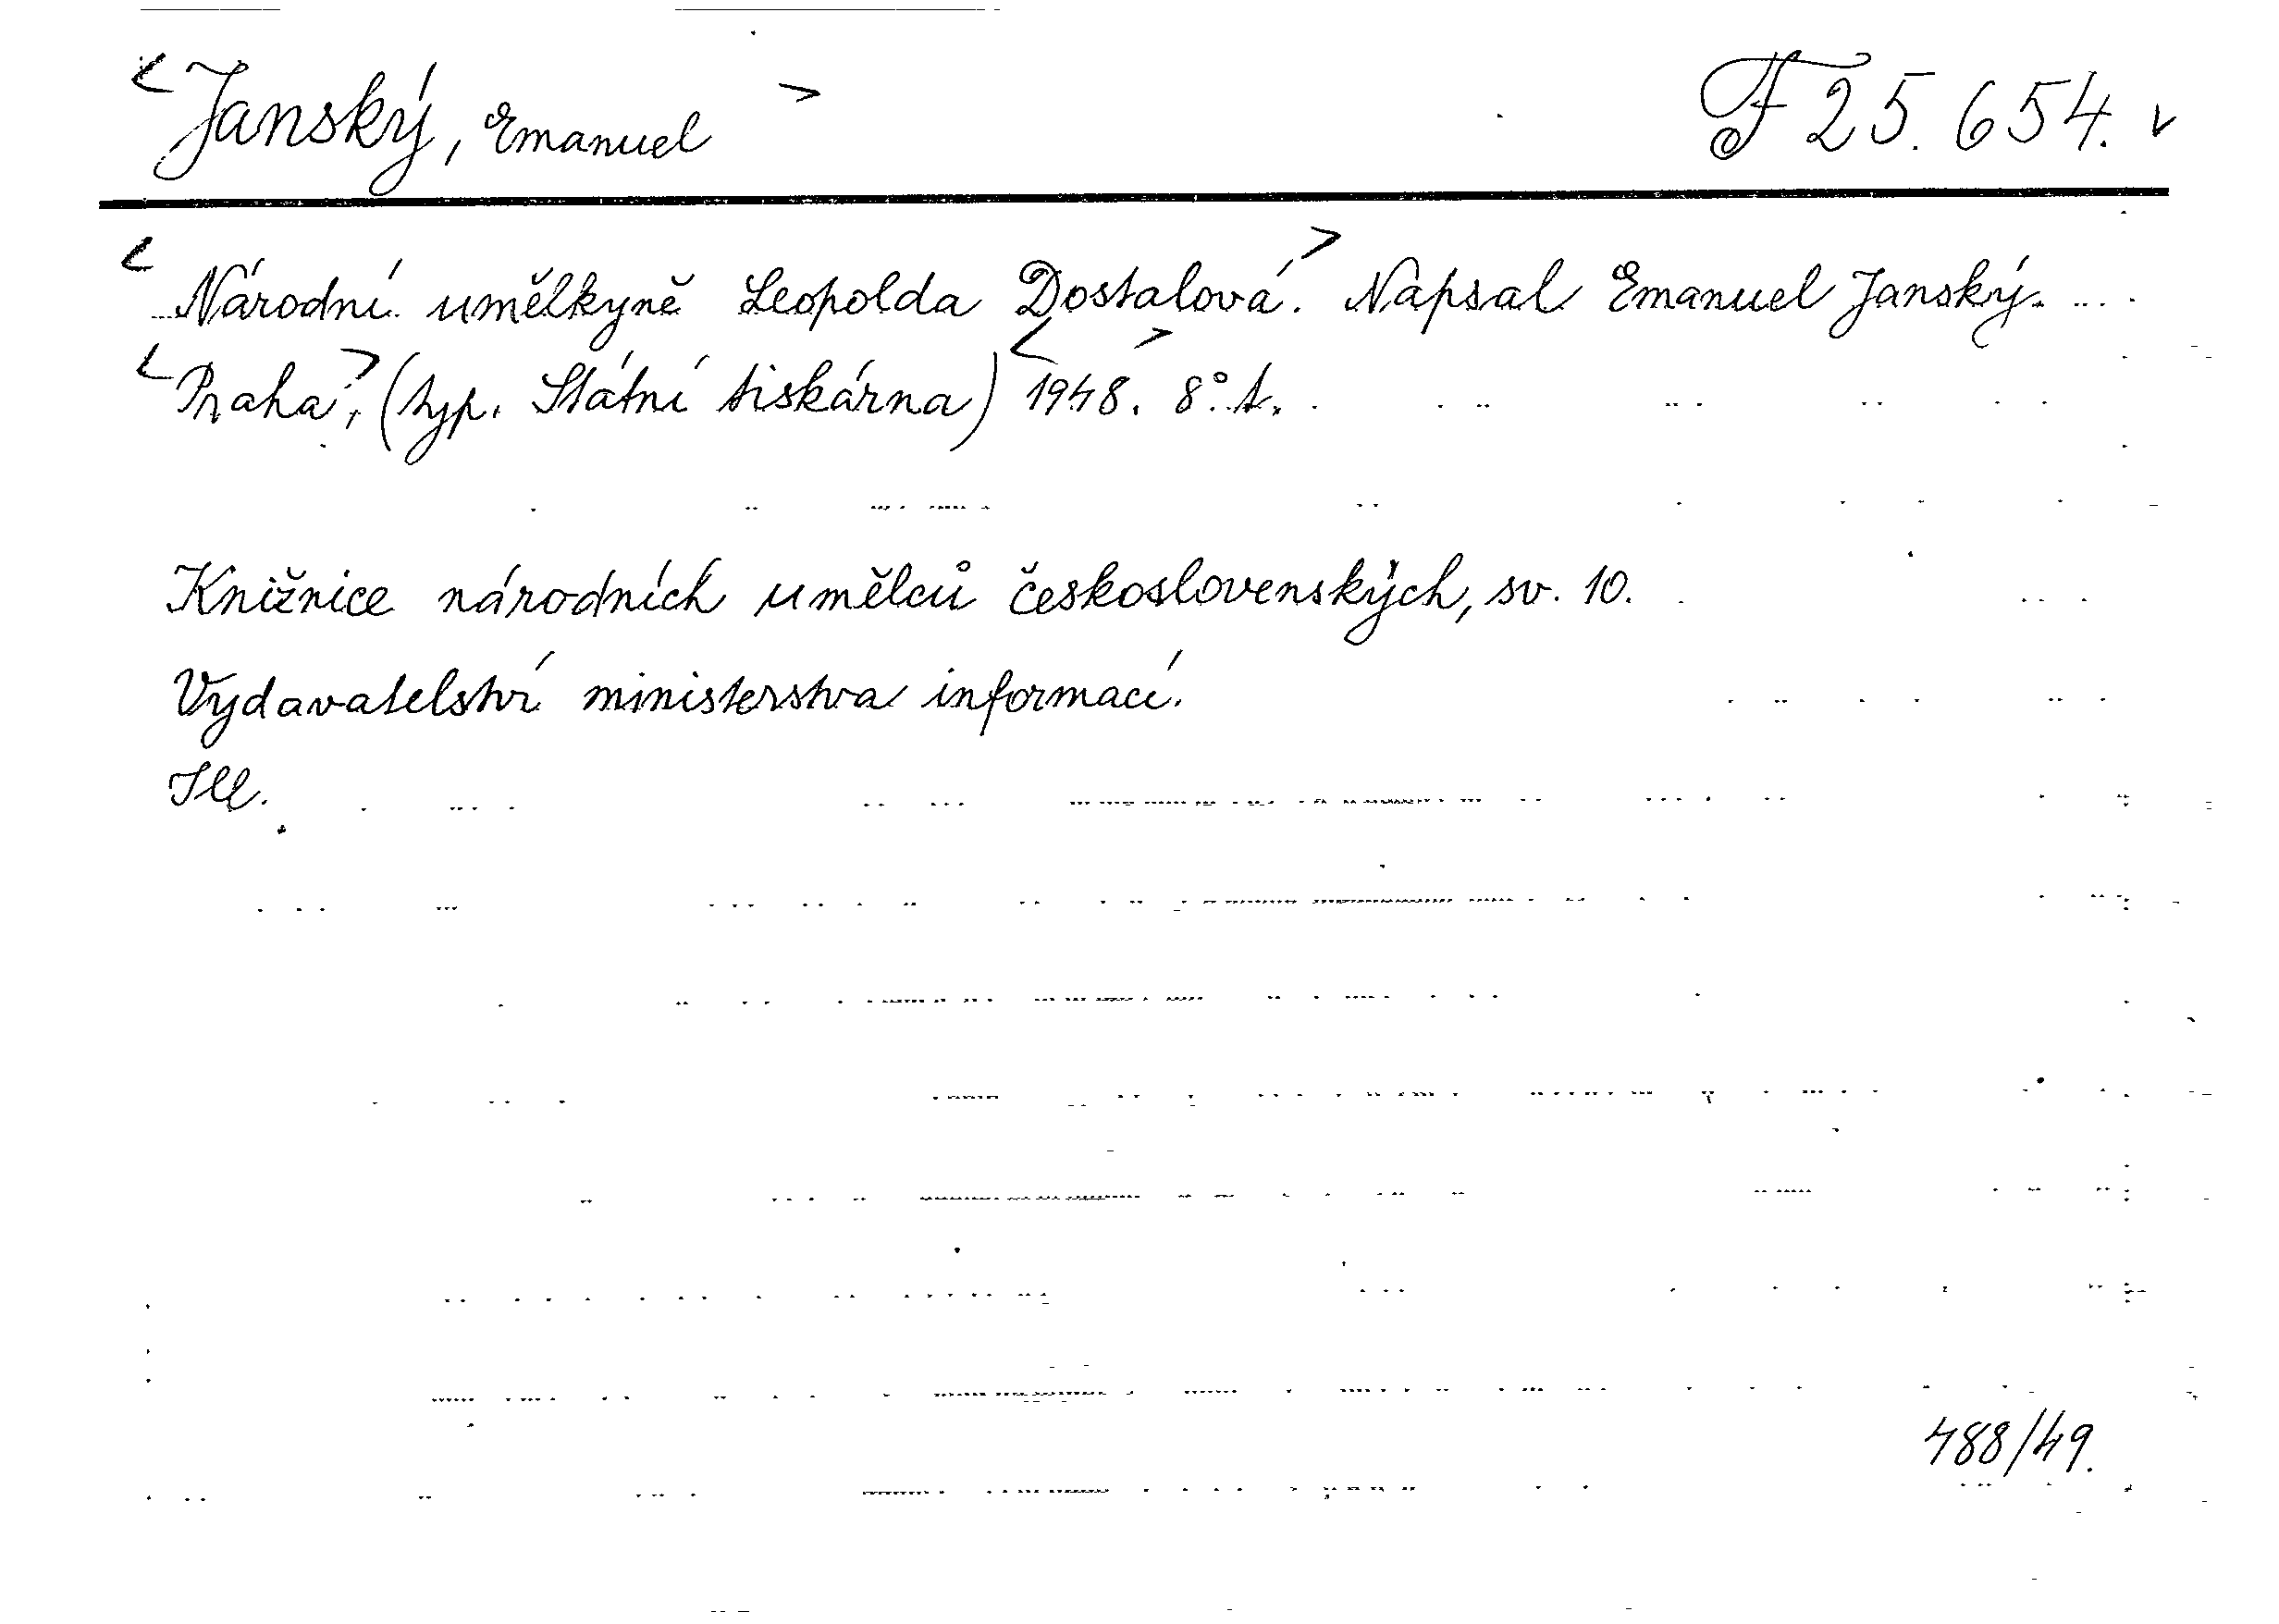 <Janský, Emanuel> F 25.654. v
<Národní umělkyně Leopolda Dostalová.> Napsal Emanuel Janský.
<Praha>, (typ. Státní tiskárna) <1948>. 8°. t.
Knižnice národních umělců československých, sv. 10.
Vydavatelství ministerstva informací.
Ill.
488/49.